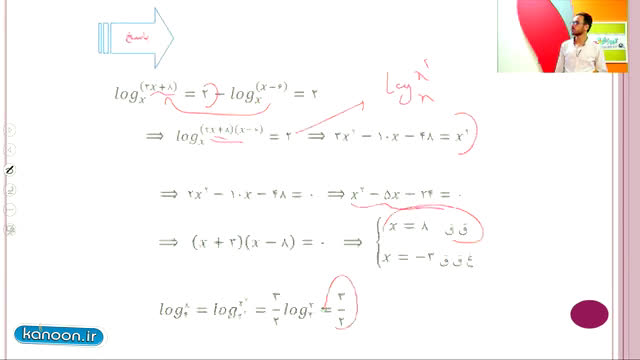 پاسخ
log_x^(۳x+۸) = ۲ − log_x^(x−۶) = ۲
log_x^x^۲
⇒ log_x^(۳x+۸)(x−۶) = ۲ ⇒ ۳x^۲ − ۱۰x − ۴۸ = x^۲
⇒ ۲x^۲ − ۱۰x − ۴۸ = ۰ ⇒ x^۲ − ۵x − ۲۴ = ۰
⇒ (x + ۳)(x − ۸) = ۰ ⇒ { x = ۸ ق ق
x = −۳ غ ق ق
log_۴^۸ = log_۲^۲^۲^۳ = ۳/۲ log_۲^۲ = ۳/۲
kanoon.ir